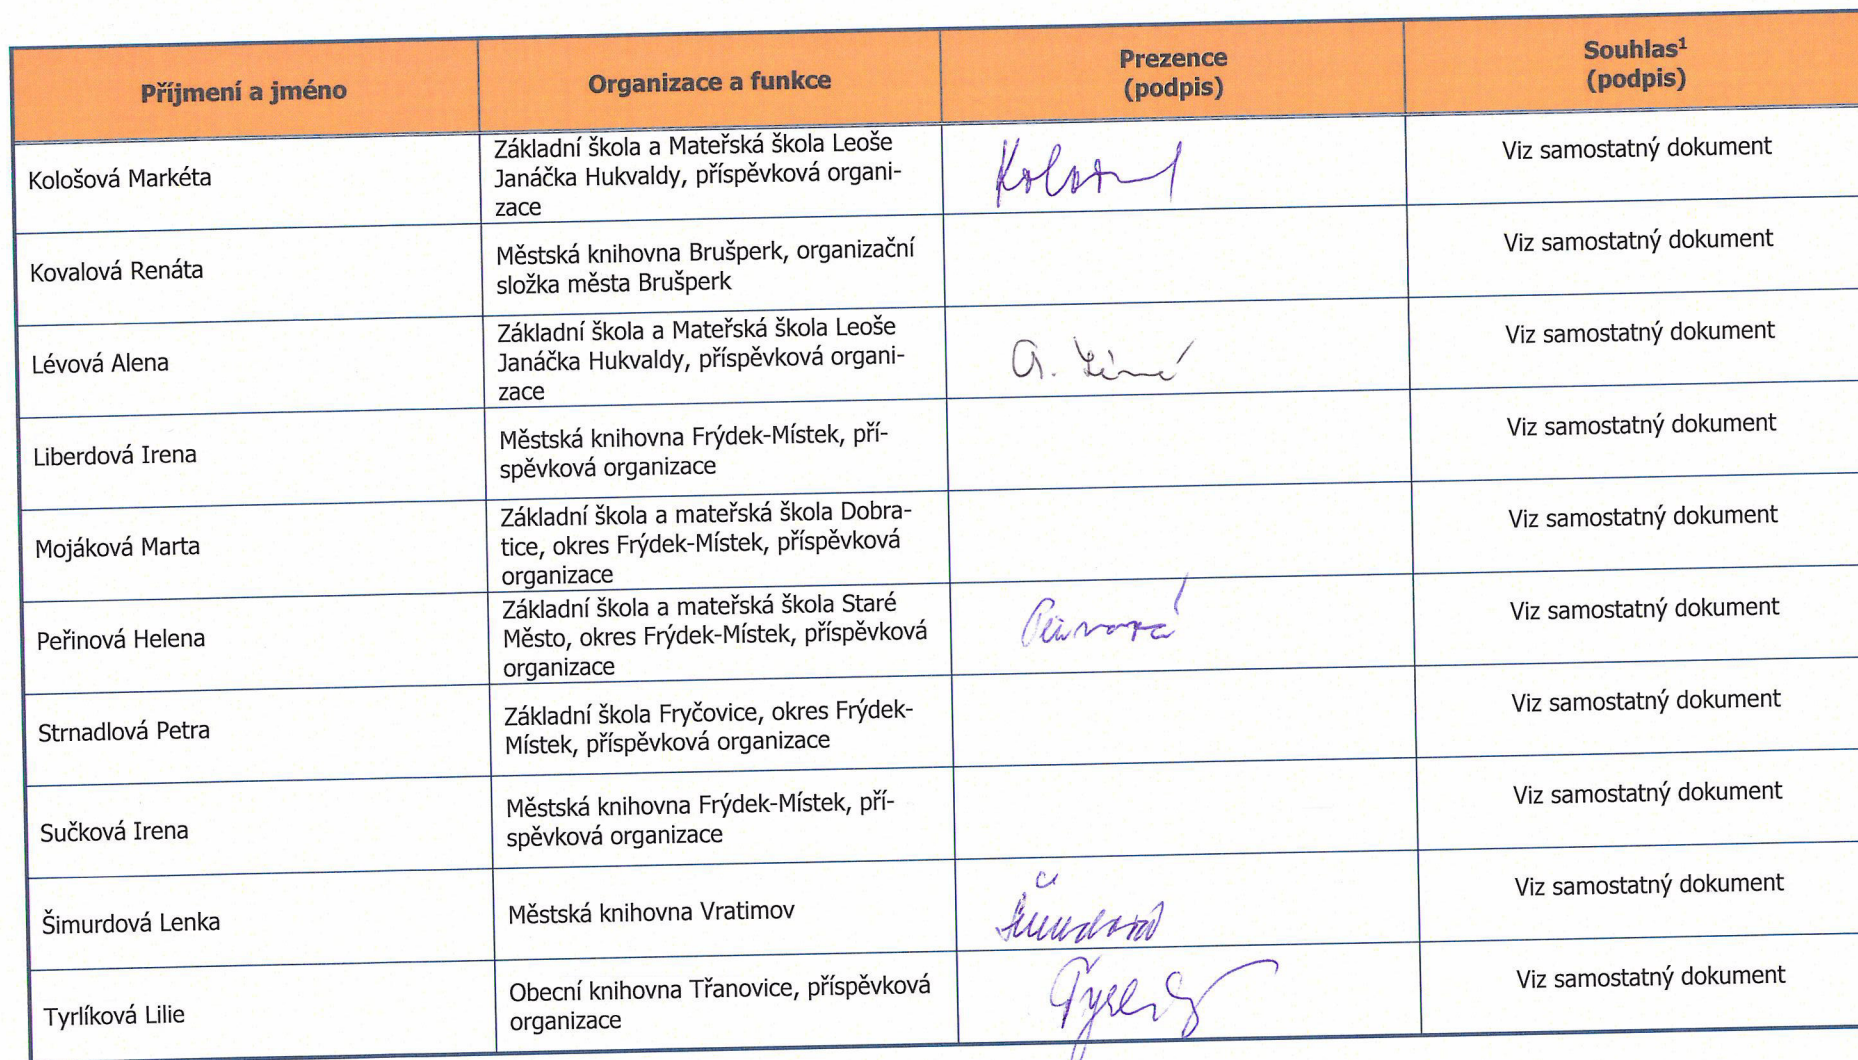 Příjmení a jméno
Organizace a funkce
Prezence
(podpis)
Souhlas¹
(podpis)
Kološová Markéta
Základní škola a Mateřská škola Leoše
Janáčka Hukvaldy, příspěvková organi-
zace
Viz samostatný dokument
Kovalová Renáta
Městská knihovna Brušperk, organizační
složka města Brušperk
Viz samostatný dokument
Lévová Alena
Základní škola a Mateřská škola Leoše
Janáčka Hukvaldy, příspěvková organi-
zace
Viz samostatný dokument
Liberdová Irena
Městská knihovna Frýdek-Místek, pří-
spěvková organizace
Viz samostatný dokument
Mojáková Marta
Základní škola a mateřská škola Dobra-
tice, okres Frýdek-Místek, příspěvková
organizace
Viz samostatný dokument
Peřinová Helena
Základní škola a mateřská škola Staré
Město, okres Frýdek-Místek, příspěvková
organizace
Viz samostatný dokument
Strnadlová Petra
Základní škola Fryčovice, okres Frýdek-
Místek, příspěvková organizace
Viz samostatný dokument
Sučková Irena
Městská knihovna Frýdek-Místek, pří-
spěvková organizace
Viz samostatný dokument
Šimurdová Lenka
Městská knihovna Vratimov
Viz samostatný dokument
Tyrlíková Lilie
Obecní knihovna Třanovice, příspěvková
organizace
Viz samostatný dokument